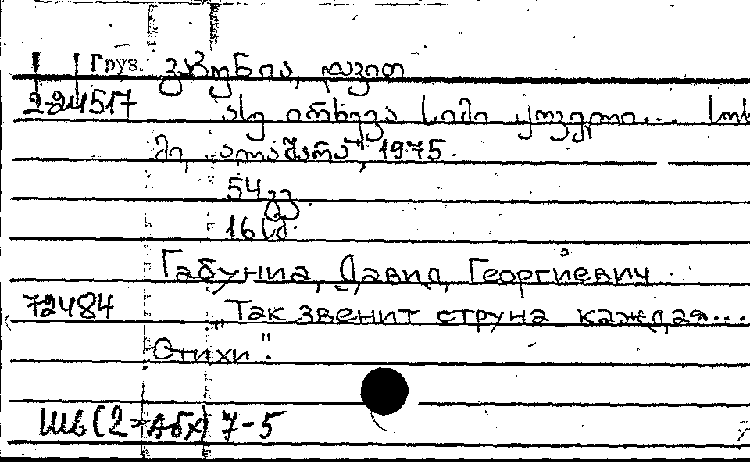 Груз. გაბუნია, დავით
2-24517 ასე ირხევა სიმი ყოველი... სოხ
მი, „ალაშარა", 1975.
54 გვ.
16 სმ.
Габуниа, Давид, Георгиевич.
72484 „Так звенит струна каждая...
Стихи".
Шб(2=Абх) 7-5